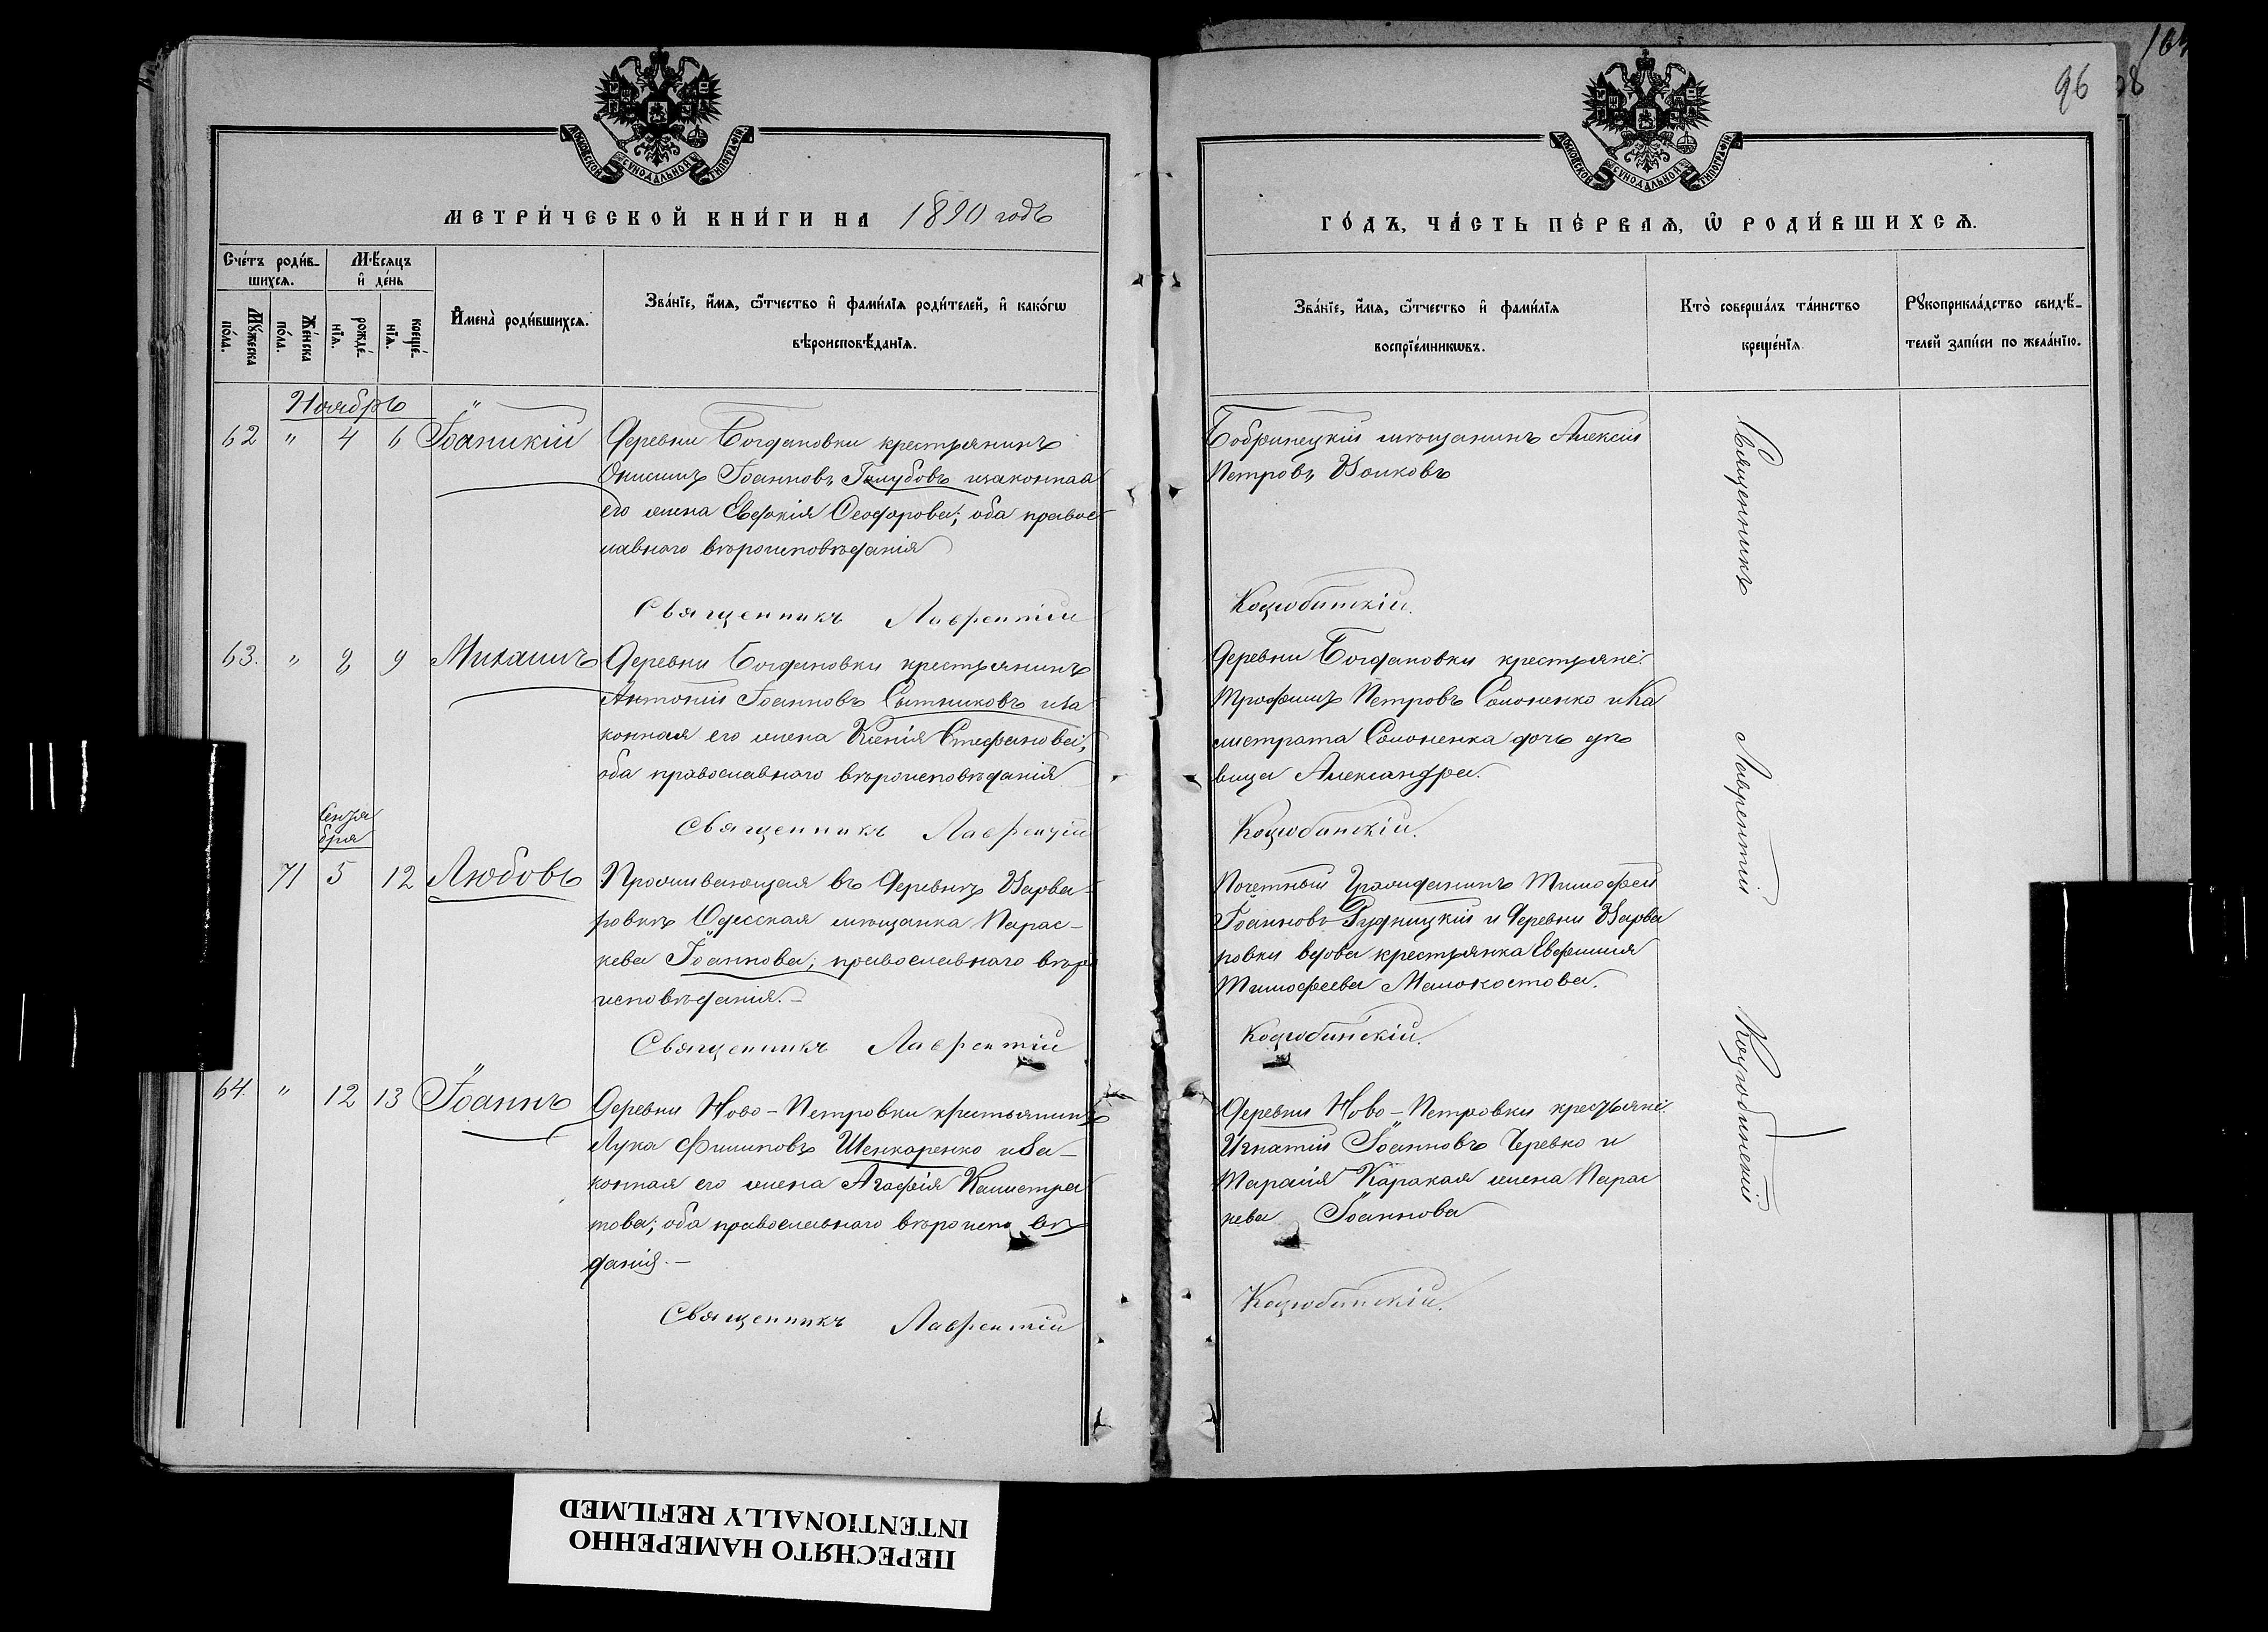 96
МЕТРИ́ЧЕСКОЙ КНИ́ГИ НА 1890 годъ
Счётъ роди́в-
шихсѧ.
Мѣ́сяцъ
и҆ де́нь
Мꙋ́жеска
по́ла.
Же́нска
по́ла.
рожде́-
нїѧ.
креще́-
нїѧ.
И҆мена̀ роди́вшихсѧ.
Зва́нїе, и҆́мѧ, ѻ҆́тчество и҆ фами́лїѧ роди́телей, и҆ како́гѡ
вѣроисповѣ́данїѧ.
Ноябрь
62 " 4 6 Іоаникій
Деревни Богдановки крестьянинъ
Онисимъ Іоанновъ Голубовъ изаконная
его жена Евдокія Ѳеодорова; оба правос
лавного вѣроисповѣданія
Священникъ Лаврентій
63. " 8 9 Михаилъ
Деревни Богдановки крестьянинъ
Антоній Іоанновъ Сытниковъ иза
конная его жена Ксенія Стефанова;
оба православнаго вѣроисповѣданія
Священникъ Лаврентій
Сентя
бря
71 5 12 Любовь
Проживающая въ деревнѣ Варва-
ровкѣ Одесская мѣщанка Парас-
кева Іоаннова; православнаго вѣро
исповѣданія.-
Священникъ Лаврентій
64. " 12 13 Іоаннъ
Деревни Ново-Петровки крестьянинъ
Лука Филиповъ Шенкаренко иза-
конная его жена Агафія Калистра
това; оба православнаго вѣроиспо вѣ
данія.-
Священникъ Лаврентій
ГО́ДЪ, ЧА́СТЬ ПЕ́РВАѦ, Ѡ҆ РОДИ́ВШИХСѦ.
Зва́нїе, и҆́мѧ, ѻ҆́тчество и҆ фами́лїѧ
воспрїе́мникѡвъ.
Кто̀ соверша́лъ та́инство
креще́нїѧ.
Рꙋкоприкла́дство свидѣ́-
телей за́писи по жела́нїю.
Бобринецкій мѣщанинъ Алексій
Петровъ Волковъ
Коцюбинскій.
Деревни Богдановки крестьяне:
Трофимъ Петровъ Солоненко и Ка
листрата Солоненка дочь дѣ
вица Александра.
Коцюбинскій.
Почетный Гражданинъ Тимофей
Іоанновъ Рудницкій и деревни Варва
ровки вдова крестьянка Евфимія
Тимофеева Малокостова.
Коцюбинскій.
Деревни Ново-Петровки крестьяне:
Игнатій Іоанновъ Черевко и
Тарасія Каракая жена Парас
кева Іоаннова
Коцюбинскій.
Священникъ Лаврентій Коцюбинскій
ПЕРЕСНЯТО НАМЕРЕННО
INTENTIONALLY REFILMED